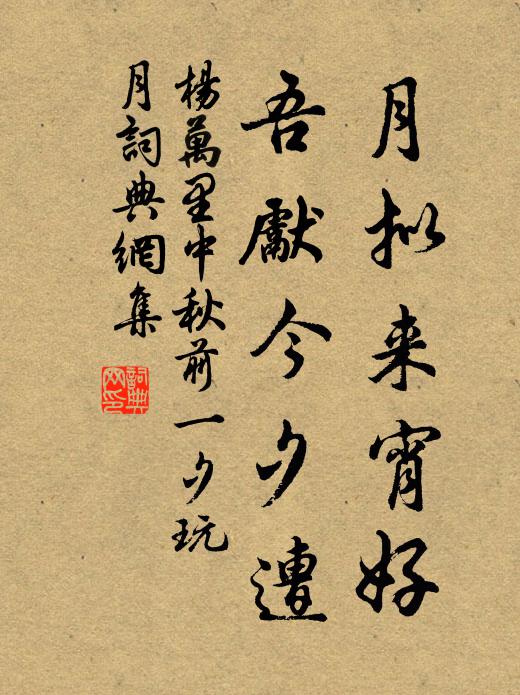 月拟来宵好
吾獻今夕遭
楊萬里中秋前一夕玩
月詞典網集
詞典
网印